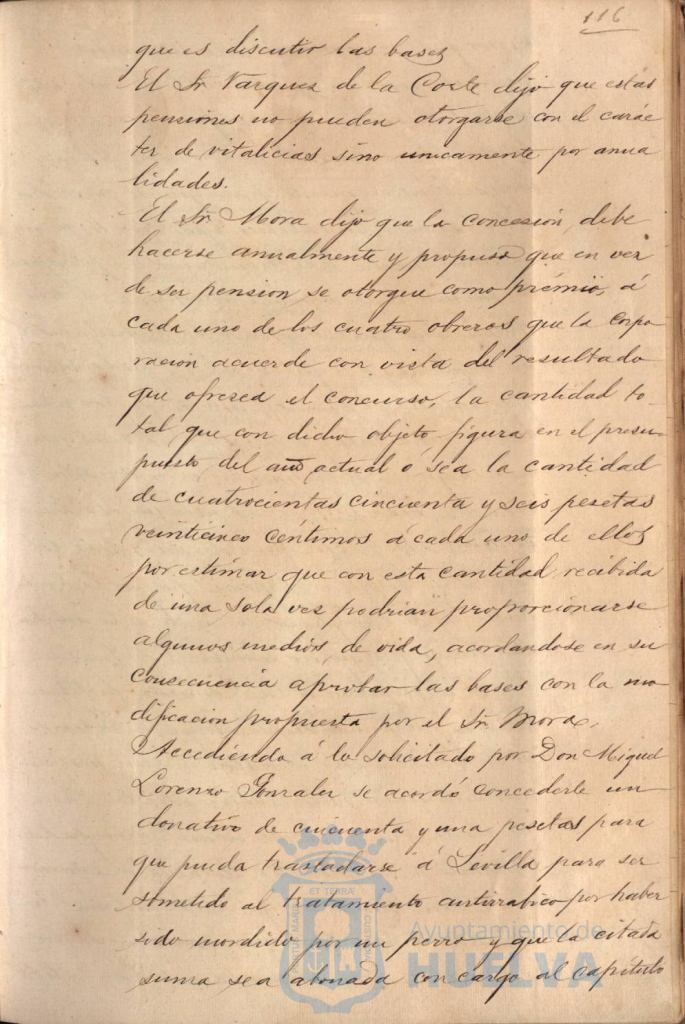 116
que es discutir las bases
El Sr Vazquez de la Corte dijo que estas
pensiones no pueden otorgarse con el carác
ter de vitalicias sino unicamente por anua
lidades.
El Sr. Mora dijo que la concesión debe
hacerse anualmente y propuso que en vez
de ser pension se otorgue como prémio, á
cada uno de los cuatro obreros que la corpo
racion acuerde con vista del resultado
que ofresca el concurso, la cantidad to-
tal que con dicho objeto figura en el presu-
puesto del año actual ó sea la cantidad
de cuatrocientas cincuenta y seis pesetas
veinticinco céntimos á cada uno de ellos
por estimar que con esta cantidad recibida
de una sola vez podrian proporcionarse
algunos medios de vida, acordandose en su
consecuencia aprobar las bases con la mo
dificacion propuesta por el Sr. Mora.
Accediendo á lo solicitado por Don Miguel
Lorenzo Gonzalez se acordó concederle un
donativo de cincuenta y una pesetas para
que pueda trasladarse á Sevilla para ser
sometido al tratamiento antirrabico por haber
sido mordido por un perro y que la citada
suma sea abonada con cargo al capitulo
Ayuntamiento de
HUELVA